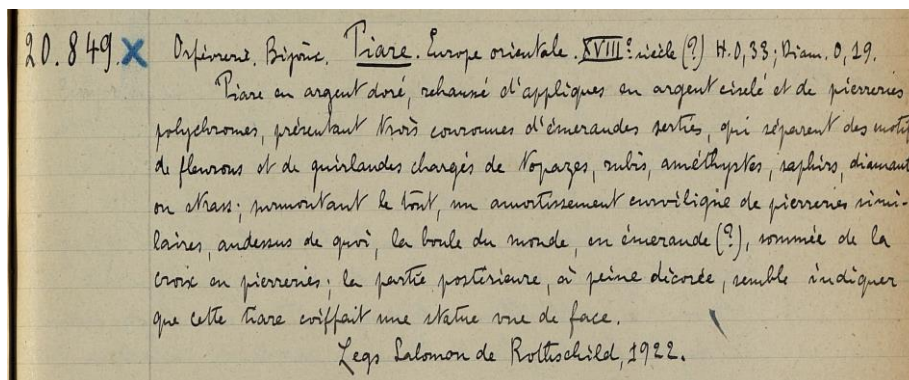 20.849. X Orfèvrerie. Bijoux. Tiare. Europe orientale. XVIIIe siècle (?) H. 0,33; Diam. 0,19.
Tiare en argent doré, rehaussé d'appliques en argent ciselé et de pierreries
polychromes, présentant trois couronnes d'émeraudes serties, qui séparent des motifs
de fleurons et de guirlandes chargés de topazes, rubis, améthystes, saphirs, diamants
ou strass; surmontant le tout, un amortissement curviligne de pierreries simi-
laires, audessus de quoi, la boule du monde, en émeraude (?), sommée de la
croix en pierreries; la partie postérieure, à peine décorée, semble indiquer
que cette tiare coiffait une statue vue de face.
Legs Salomon de Rothschild, 1922.